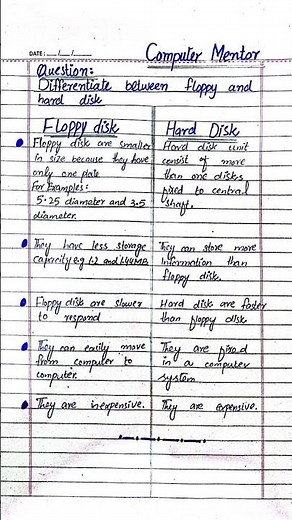 DATE: __/__/____
Computer Mentor
Question:
Differentiate between floppy and
hard disk
Floppy disk
Floppy disk are smaller
in size because they have
only one plate
For Examples:
5.25 diameter and 3.5
diameter.
They have less storage
capacity e.g 1.2 and 1.44MB
Floppy disk are slower
to respond
They can easily move
from computer to
computer.
They are inexpensive.
Hard Disk
Hard disk unit
consist of more
than one disks
fixed to central
shaft.
They can store more
information than
floppy disk.
Hard disk are faster
than floppy disk
They are fixed
in a computer
system
They are expensive.